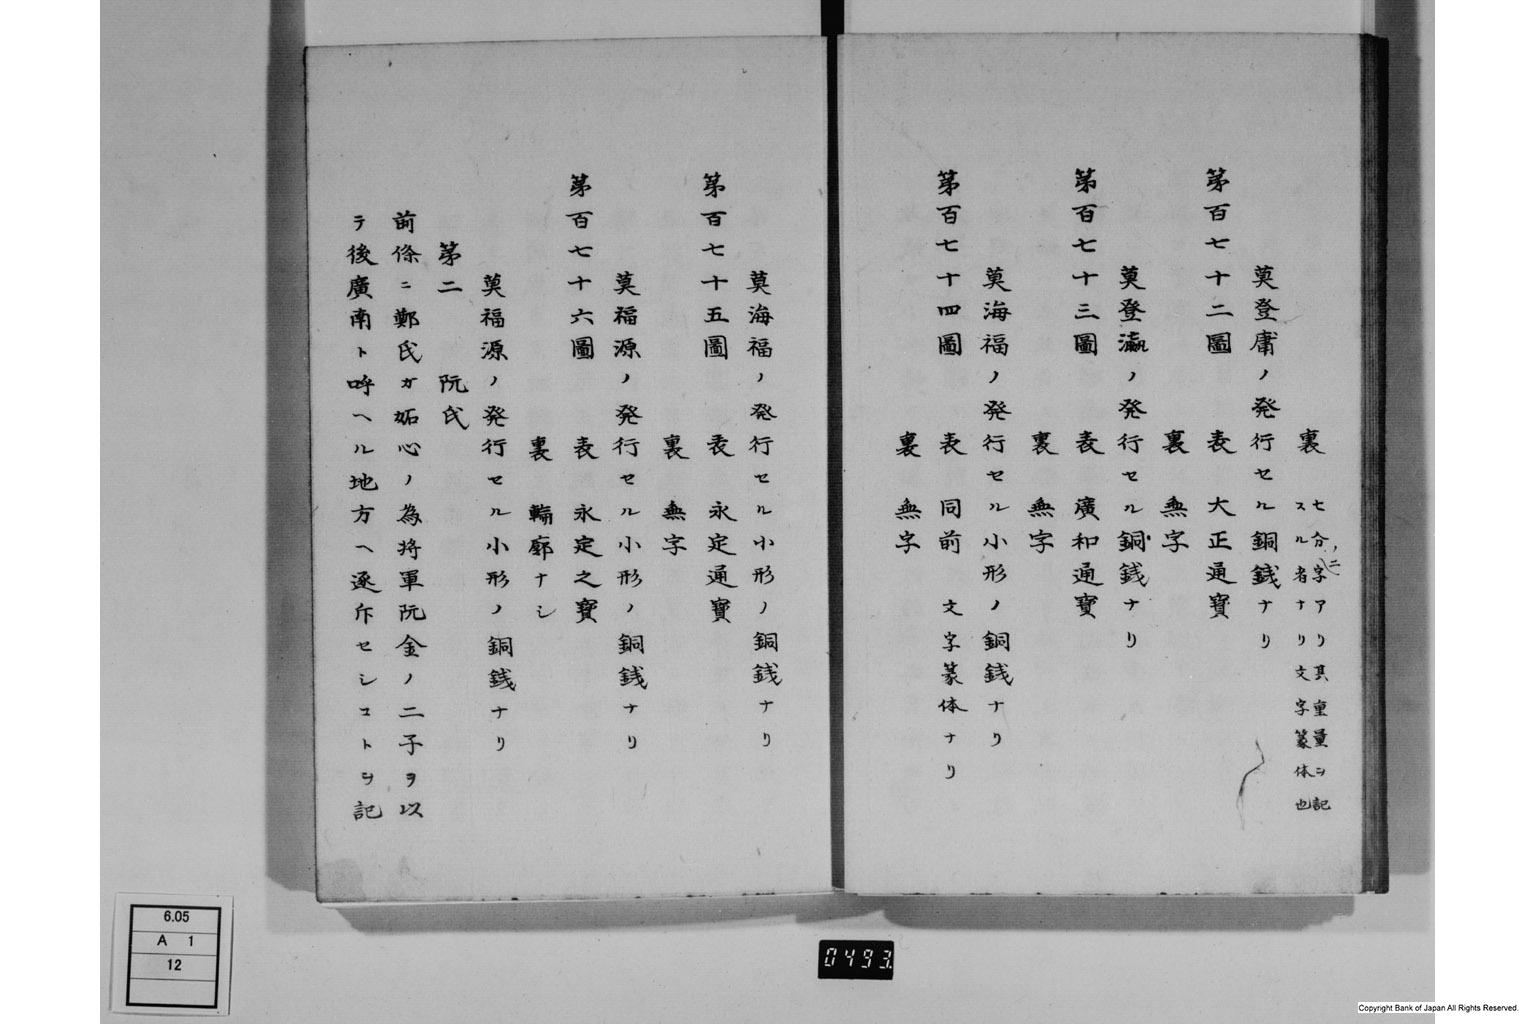 裏　七分ノ二字アリ其重量ヲ記
スル者ナリ文字篆体也
莫登庸ノ発行セル銅銭ナリ
第百七十二圖　表　大正通寳
裏　無字
莫登瀛ノ発行セル銅銭ナリ
第百七十三圖　表　廣和通寳
裏　無字
莫海福ノ発行セル小形ノ銅銭ナリ
第百七十四圖　表　同前　文字篆体ナリ
裏　無字
莫海福ノ発行セル小形ノ銅銭ナリ
第百七十五圖　表　永定通寳
裏　無字
莫福源ノ発行セル小形ノ銅銭ナリ
第百七十六圖　表　永定之寳
裏　輪廓ナシ
莫福源ノ発行セル小形ノ銅銭ナリ
第二　阮氏
前條ニ鄭氏ガ妬心ノ為将軍阮金ノ二子ヲ以
テ後廣南ト呼ヘル地方ヘ逐斥セシコトヲ記
6.05
A 1
12
0493.
Copyright Bank of Japan All Rights Reserved.